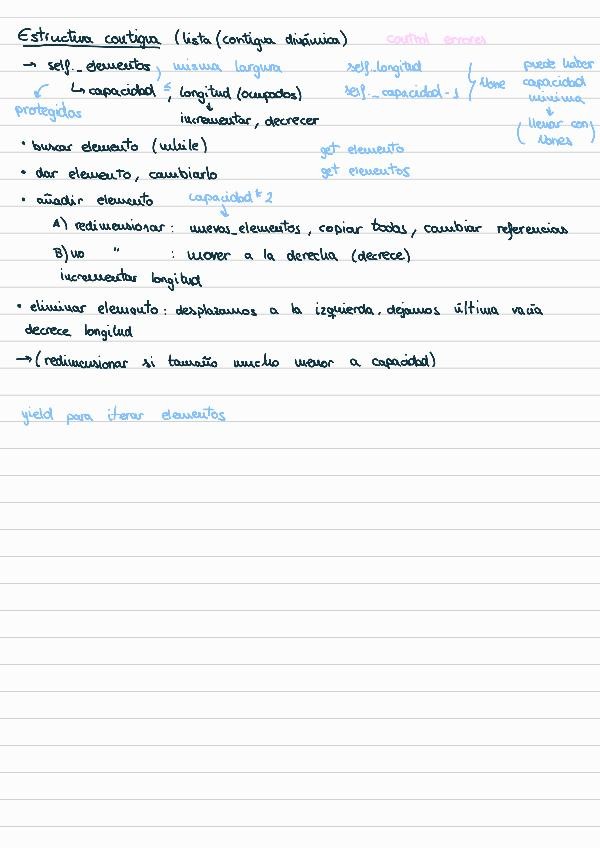 Estructura contigua (lista (contigua dinámica) control errores
→ self._elementos, misma largura self._longitud puede haber
↳ capacidad ≤, longitud (ocupados) self._capacidad-1 None capacidad
protegidos incrementar, decrecer mínima
(llenar con Nones)
• buscar elemento (while) get elemento
• dar elemento, cambiarlo get elementos
• añadir elemento capacidad * 2
A) redimensionar: nuevos_elementos, copiar todos, cambiar referencias
B) no " : mover a la derecha (decrece)
incrementar longitud
• eliminar elemento: desplazamos a la izquierda, dejamos última vacía
decrece longitud
→ (redimensionar si tamaño mucho menor a capacidad)
yield para iterar elementos